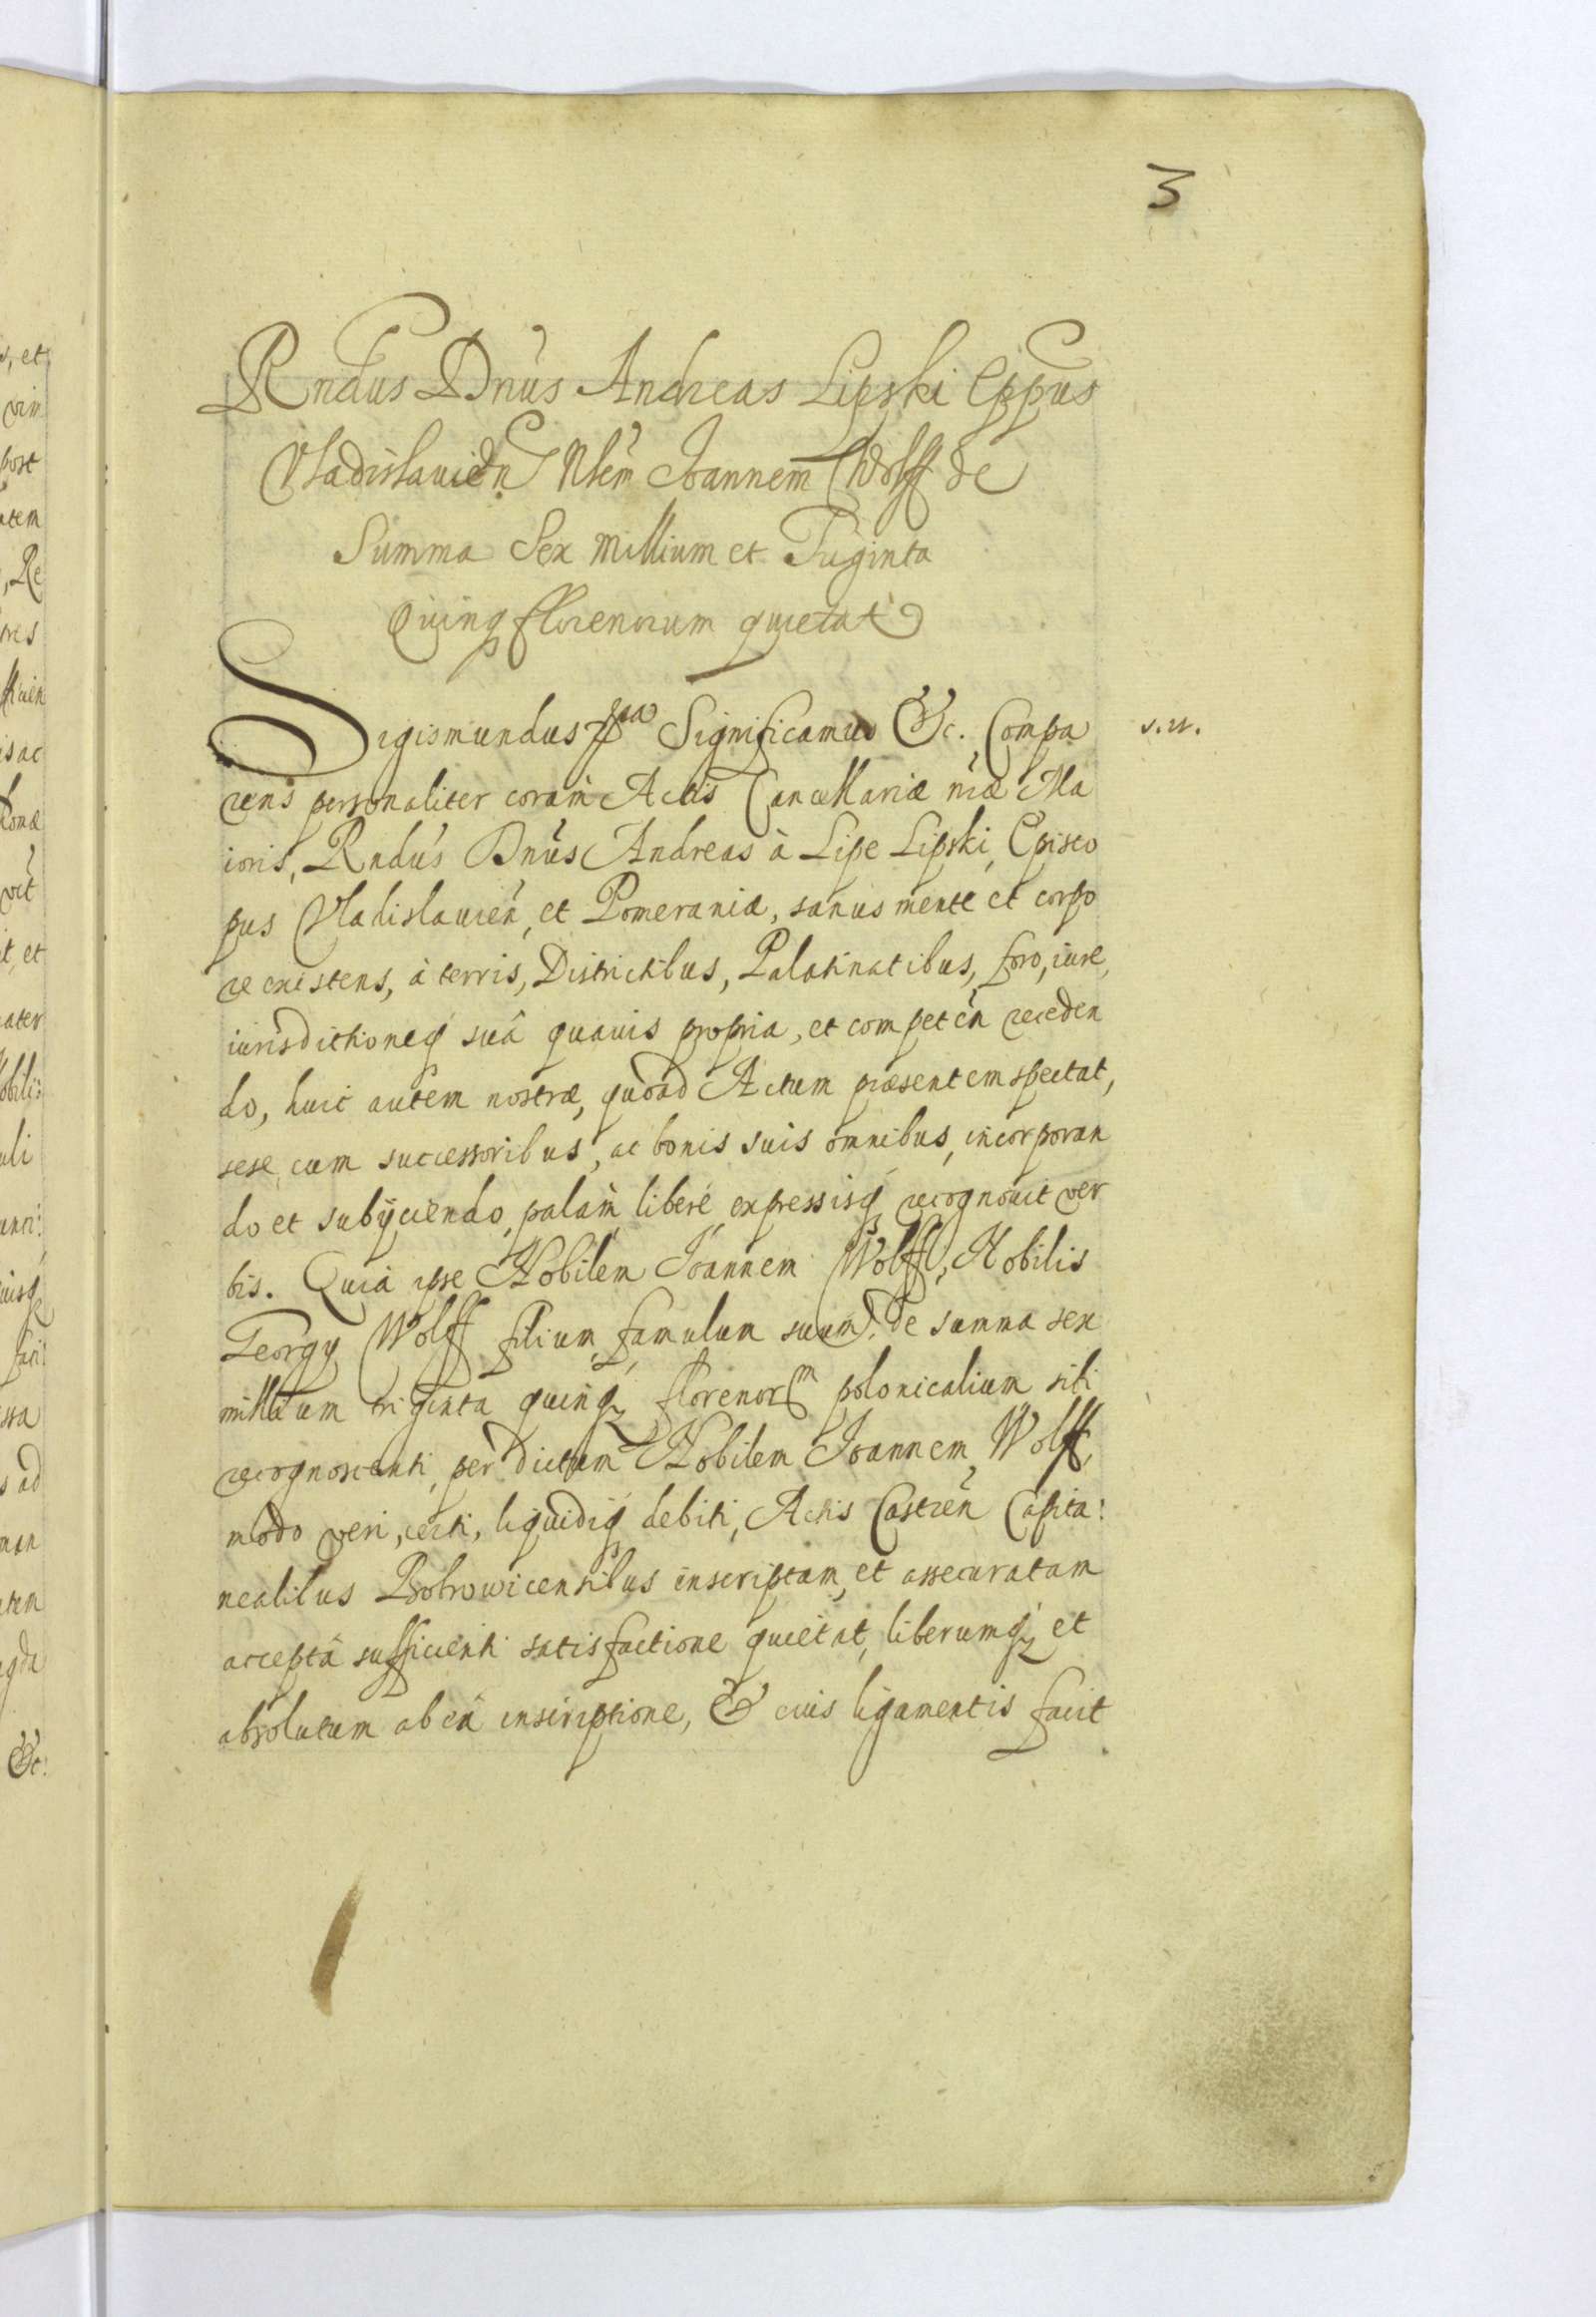 3
Rndus Dnus Andreas Lipski Eppus
Vladislauien Nlem Joannem Wolff de
Summa Sex Millium et Triginta
Quinq florenorum quietat
Sigismundus 3tius Significamus &c. Compa
s. u.
rens personaliter coram Actis Cancellariæ nræ Ma
ioris, Rndus Dnus Andreas à Lipe Lipski, Episco
pus Vladislauien, et Pomeraniæ, sanus mente et corpo
re existens, à terris, Districtibus, Palatinatibus, foro, iure,
iurisdictioneq suâ quauis propria, et competen receden
do, huic autem nostræ, quoad Actum præsentem spectat,
sese cum successoribus, ac bonis suis omnibus, incorporan
do et subÿciendo, palàm liberè expressisq recognouit ver
bis. Quia ipse Nobilem Joannem Wolff, Nobilis
Georgy Wolff filium, famulum suum, de summa sex
millium triginta quinq florenorum polonicalium sibi
recognoscenti, per dictum Nobilem Joannem Wolff,
modo veri, certi, liquidiq debiti, Actis Castren Capita:
nealibus Bobrowicensibus inscriptam, et assecuratam
acceptâ sufficienti satisfactione quietat, liberumq et
absolutum ab eâ inscriptione, & eius ligamentis facit